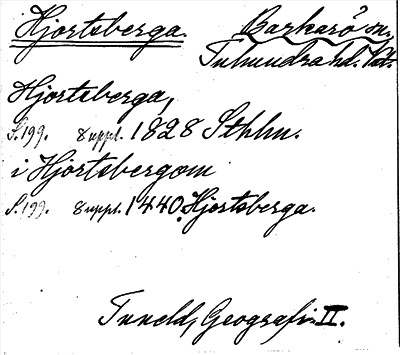 Hjortsberga. Barkarö sn,
Tuhundra hd. Vstm.
Hjortsberga,
S. 199. 8 uppl. 1828 Sthlm.
i Hjortsbergom
S. 199. 8 uppl. 1440. Hjortsberga.
Tuneld, Geografi II.